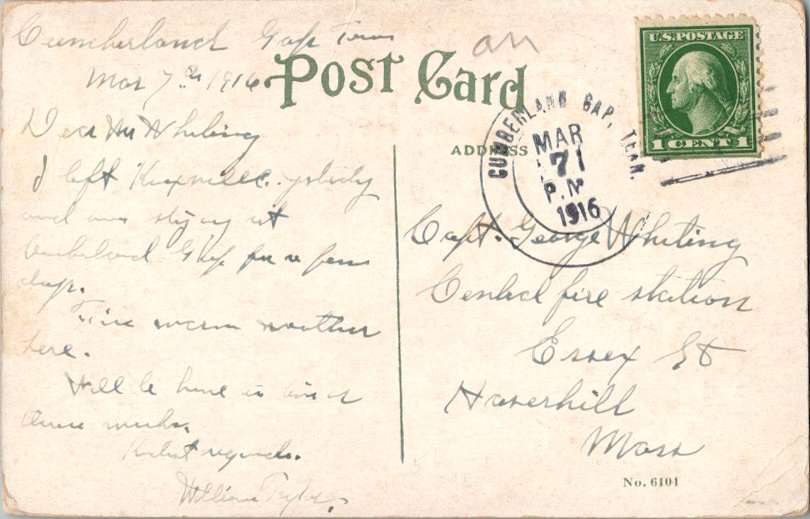 Cumberland Gap Tenn
Mar 7th 1916
Dear Mr Whiting
I left Knoxville
and am stopping at
Cumberland Gap for a few
days.
Fine warm weather
here.
Will be home in
three weeks.
Kindest regards.
William
POST CARD
ADDRESS
CUMBERLAND GAP, TENN.
MAR
71
P.M
1916
U.S. POSTAGE
1 CENT 1
Capt. George Whiting
Central fire station
Essex St
Haverhill
Mass
No. 6104